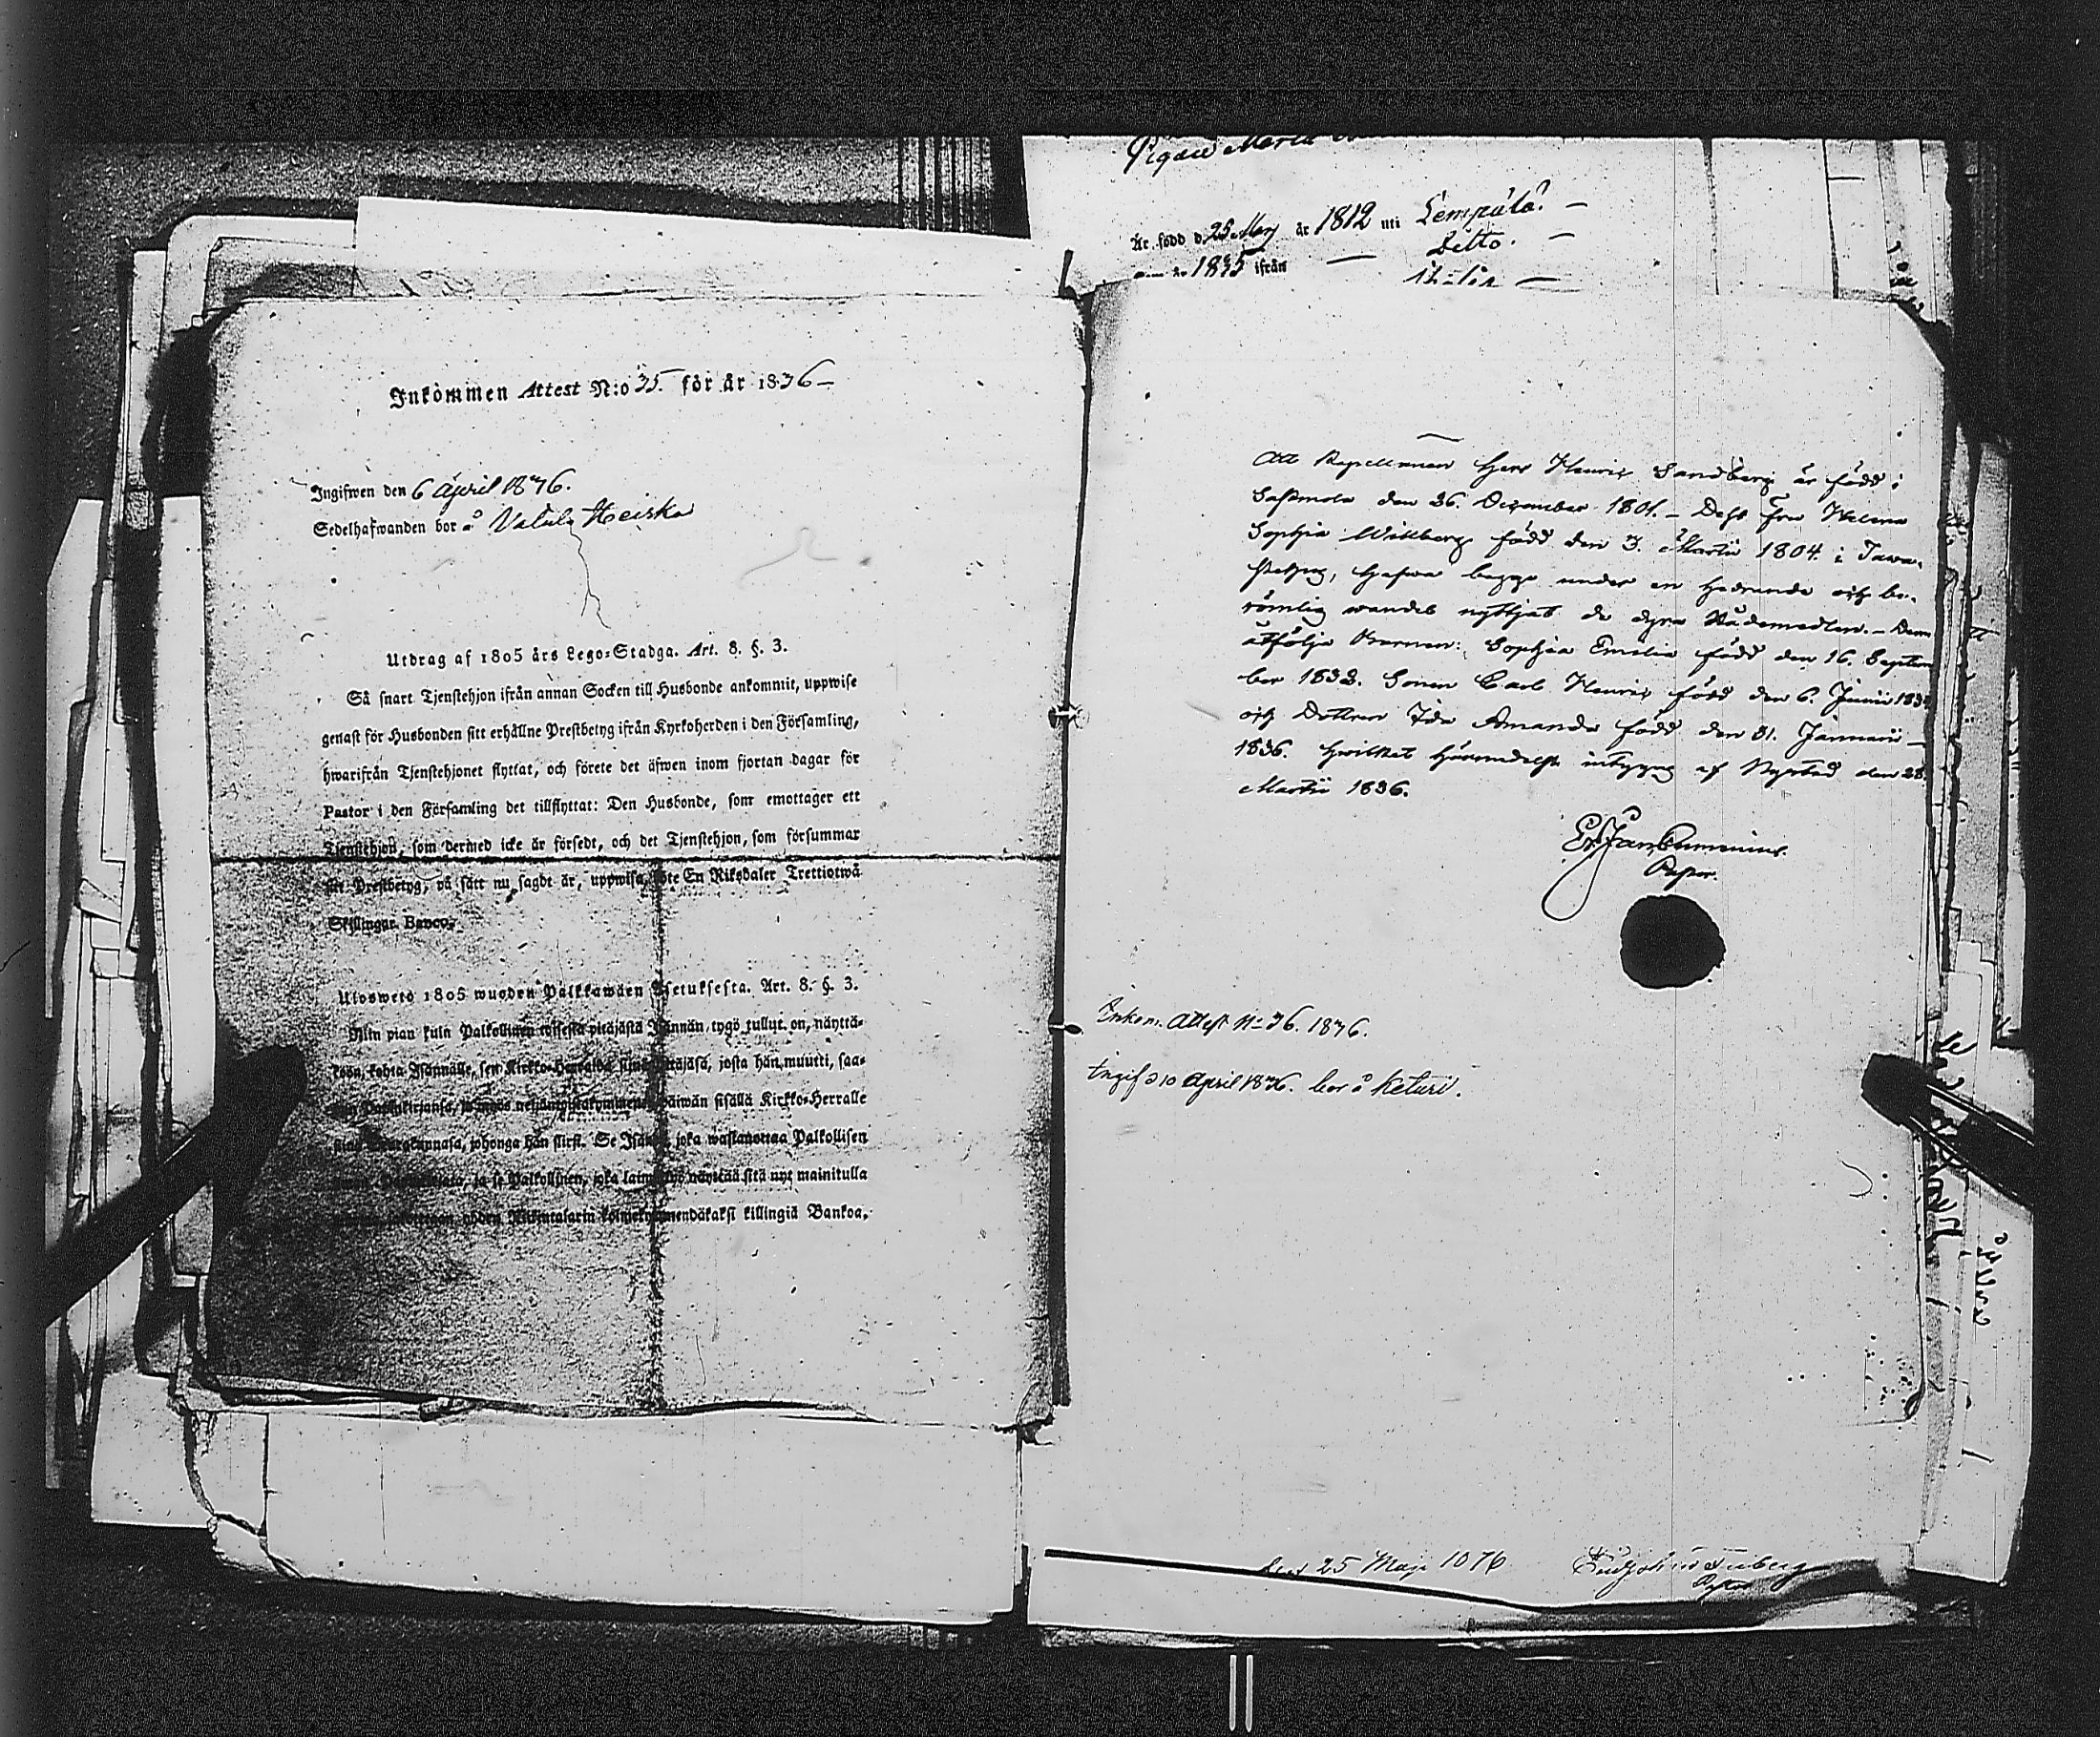 Inkommen Attest N:o 35. för år 1836 –
Ingifwen den 6 April 1836.
Sedelhafwanden bor å Valula Heiska
Utdrag af 1805 års Lego-Stadga. Art. 8. §. 3.
Så snart Tjenstehjon ifrån annan Socken till Husbonde ankommit, uppwise
genast för Husbonden sitt erhållne Prestbetyg ifrån Kyrkoherden i den Församling,
hwarifrån Tjenstehjonet flyttat, och förete det äfwen inom fjortan dagar för
Pastor i den Församling det tillflyttat: Den Husbonde, som emottager ett
Tjenstehjon, som dermed icke är försedt, och det Tjenstehjon, som försummar
sitt Prestbetyg, på sätt nu sagdt är, uppwisa, böte En Riksdaler Trettiotwå
Skillingar Banco.
Ulosweto 1805 wuoden Palkkawäen Asetuksesta. Art. 8. §. 3.
Niin pian kuin Palkollinen toisesta pitäjästä Isännän tygö tullut on, näyttä-
köön, kohta Isännälle, sen Kirkko-Herralda siinä pitäjäsä, josta hän muutti, saa-
neljäntoistakymmenen päiwän sisällä Kirkko-Herralle
Seurakunnasa, johonga hän siirsi. Se Isäntä, joka wastanottaa Palkollisen
ja se Palkollinen, joka näyttää sitä nyt mainitulla
yhden Riksintalarin kolmekymmendäkaksi killingiä Bankoa.
Pigan Maria
Är född d 25 Maij år 1812 uti Lempälä. –
Ditto. –
år 1835 ifrån –
Att Kapellanen Herr Henric Sandberg är född i
Sastmola den 26. December 1801. – Dess Fru Helena
Sophia Wikberg född den 3. Martii 1804. i Tawa-
stehus, hafwa begge under en hedrande och be-
römlig wandel nyttjat de dyra Nådemedlen. – Dem
åtfölja Barnen: Sophia Emelia född den 16. Septem
ber 1832. Sonen Carl Henric född den 6. Junii 183
och Dottren Ida Amanda född den 31. Januarii –
1836. Hwilket härmedelst intygas af Nystad den 28.
Martii 1836.
Pastor.
Inkom. Attest N:o 36. 1836.
Ingif d 10 April 1836. bor å Keturi.
den 25 Maji 1836
Pastor